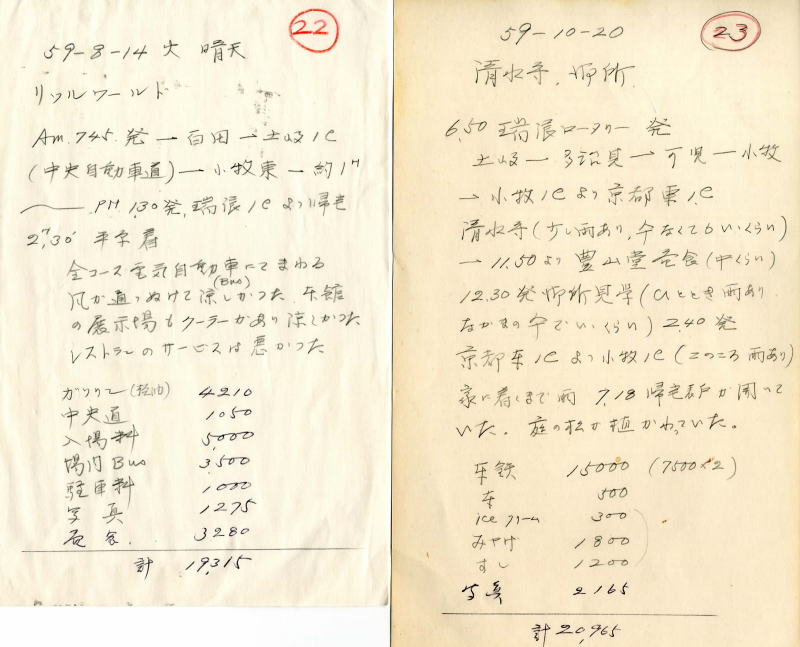 22
59-8-14 火 晴天
リトルワールド
Am. 7.45. 発 → 百田 → 土岐IC
(中央自動車道) → 小牧東 → 約1H
PM. 1.30発, 瑞浪ICより帰宅
2H,30' 平宅着
全コース電気自動車にてまわる
(Bus)
風が通りぬけて涼しかつた. 本館
の展示場もクーラーがあり涼しかつた
レストランのサービスは悪かつた
ガソリン (給油) 4210
中央道 1050
入場料 5,000
場内Bus 3,500
駐車料 1,000
写真 1275
昼食. 3280
計 19,315
23
59-10-20
清水寺. 御所.
6.50 瑞浪ロータリー 発
土岐 → 多治見 → 可児 → 小牧
→ 小牧ICより京都東IC
清水寺 (少し雨あり, 傘なくてもいいくらい)
→ 11.50より 豊山堂 昼食 (中くらい)
12.30発 御所見学 (ひととき雨あり
なかまの傘でいいくらい) 2.40発
京都東ICより小牧IC (このころ雨あり)
家に着くまで雨 7,18 帰宅 表戸が開いて
いた. 庭の松が植かわっていた。
15000 (7500×2)
500
ice クリーム 300
みやげ 1800
すし 1200
写真 2165
計 20,965